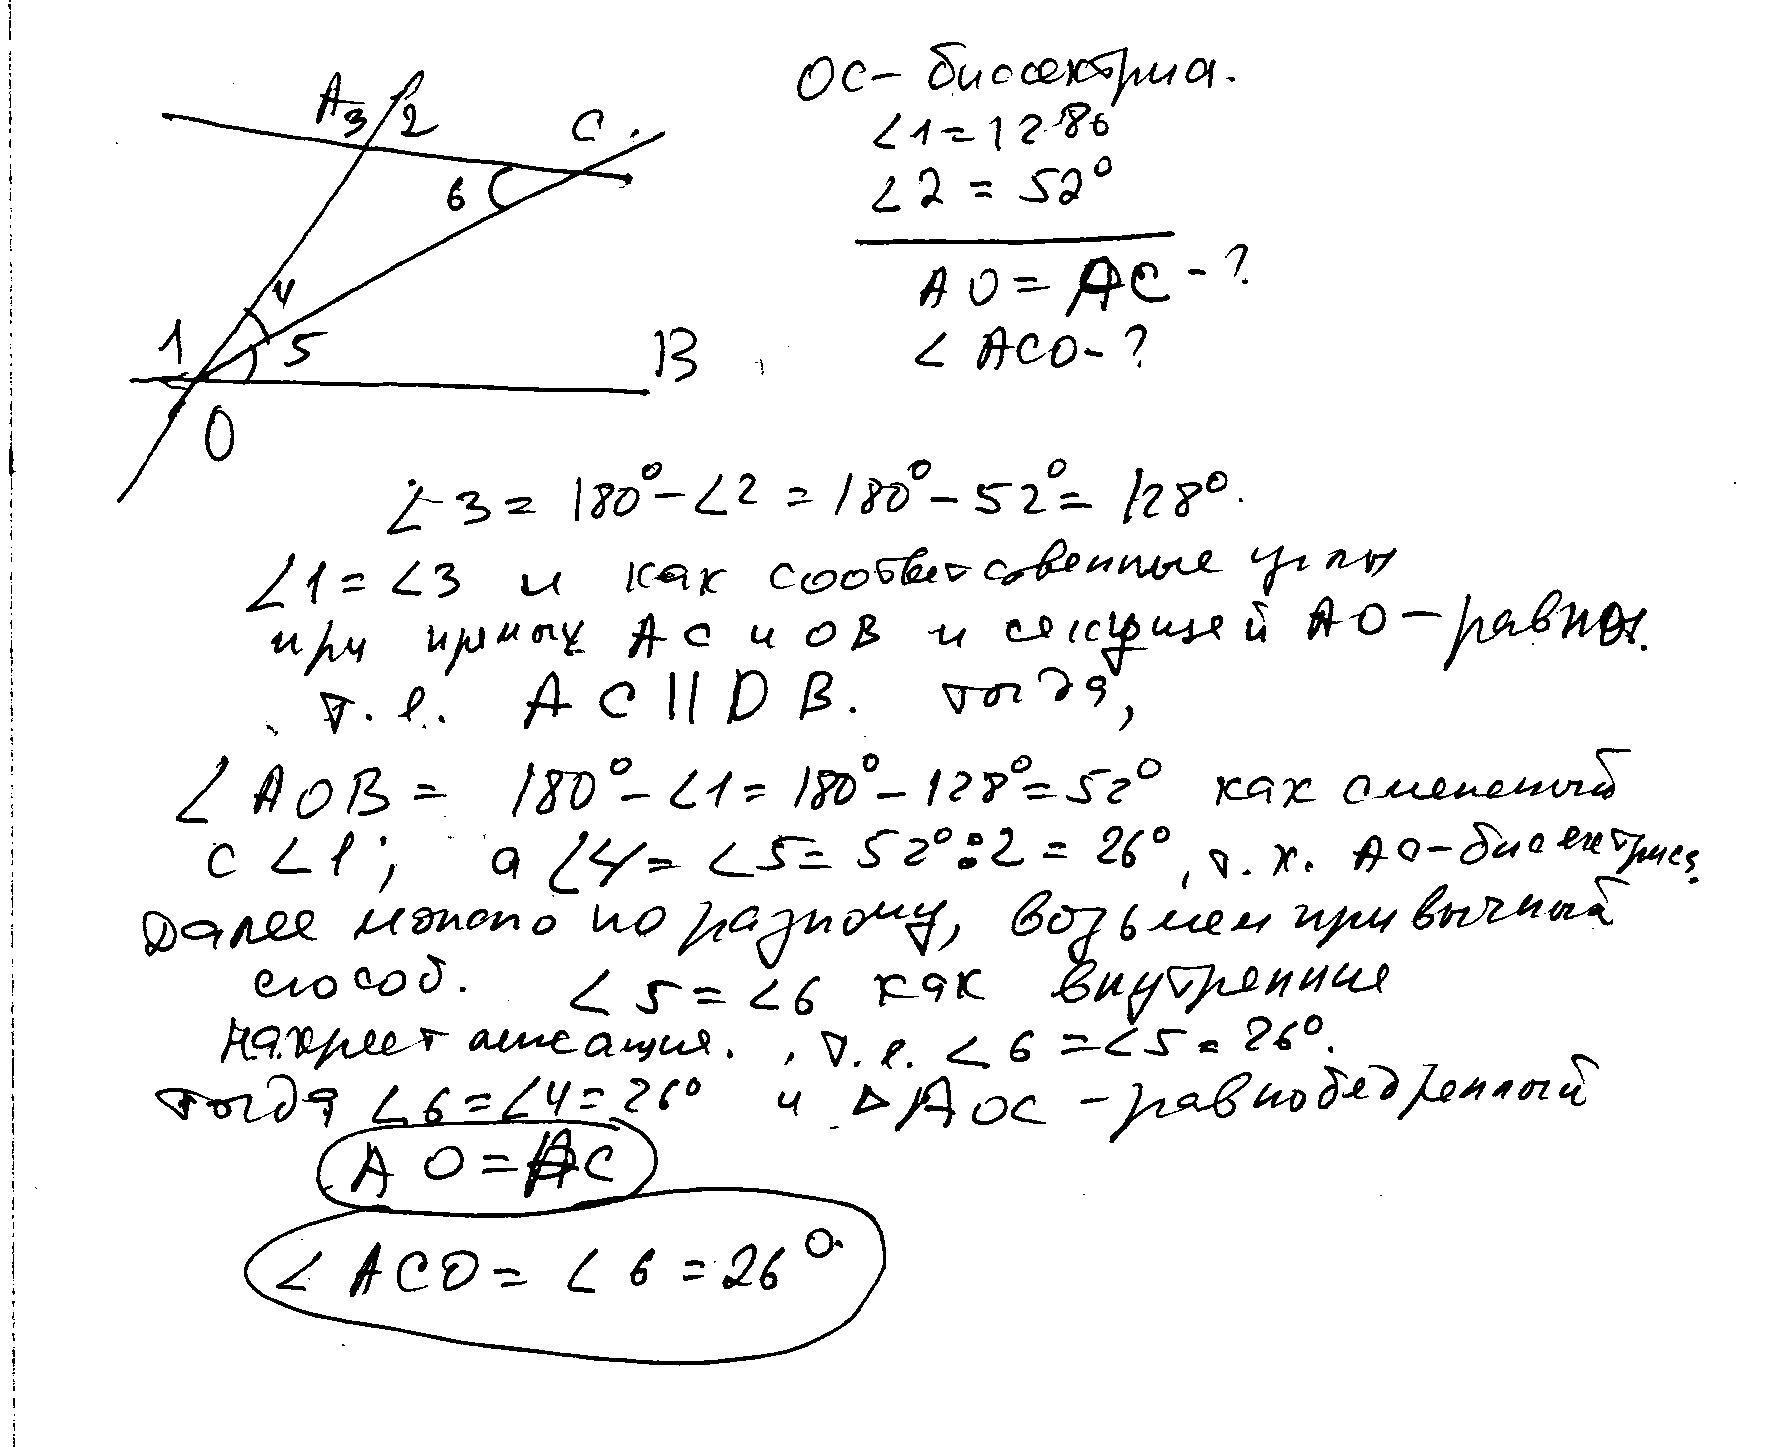 A 3 2 C.
6
4
1 5 B
O
OC - биссектриса.
∠1 = 128°
∠2 = 52°
AO = AC - ?
∠ ACO - ?
∠3 = 180° - ∠2 = 180° - 52° = 128°.
∠1 = ∠3 и как соответственные углы
при прямых AC и OB и секущей AO - равны.
т.е. AC || OB. тогда,
∠AOB = 180° - ∠1 = 180° - 128° = 52° как смежный
с ∠1; а ∠4 = ∠5 = 52° : 2 = 26°, т.к. AO - биссектриса.
Далее можно по разному, возьмем привычный
способ. ∠5 = ∠6 как внутренние
накрест лежащие., т.е. ∠6 = ∠5 = 26°.
тогда ∠6 = ∠4 = 26° и ▷AOC - равнобедренный
AO = AC
∠ ACO = ∠6 = 26°